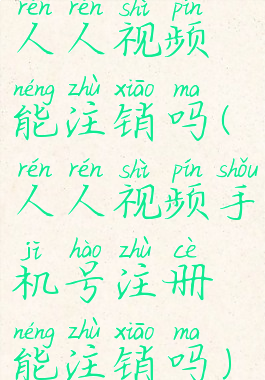 rén rén shì pín
人人视频
néng zhù xiāo ma
能注销吗(
rén rén shì pín shǒu
人人视频手
jī hào zhù cè
机号注册
néng zhù xiāo ma
能注销吗)